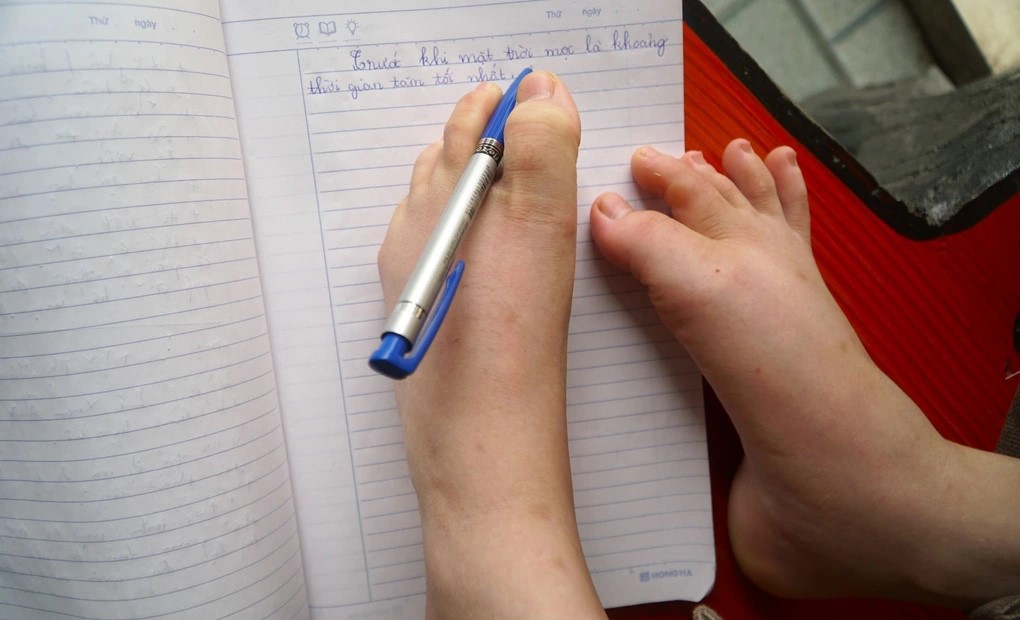 Thứ ngày
Thứ ngày
Trước khi mặt trời mọc là khoảng
thời gian tăm tối nhất.
HONG HA